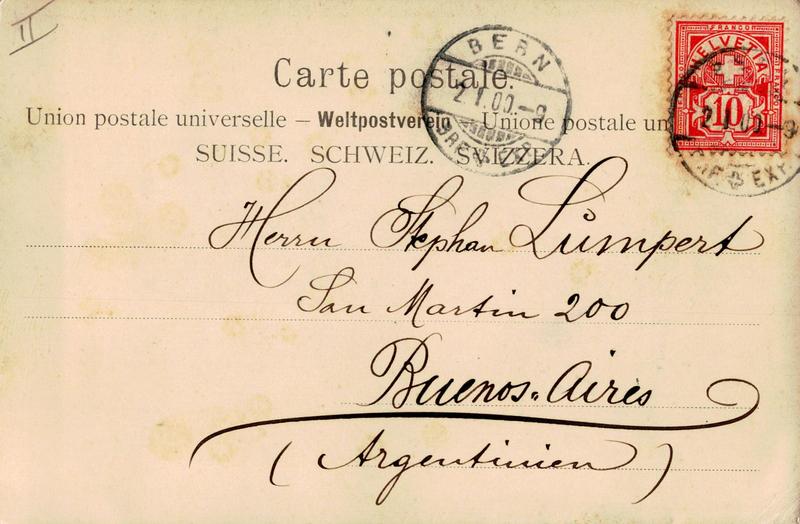 II
Carte postale.
Union postale universelle – Weltpostverein – Unione postale un
SUISSE. SCHWEIZ. SVIZZERA.
BERN
2.I.00.–9
BRF. EXP.
FRANCO
HELVETIA
10
2.I.00.–9
BRF. EXP.
Herrn Stephan Lůmpert
San Martin 200
Buenos-Aires
(Argentinien)